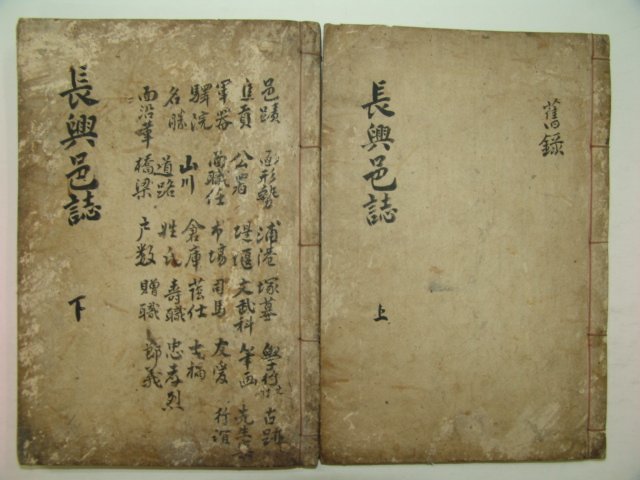 舊錄
長興邑誌
上
邑蹟 面形勢 浦港 塚墓 古跡
貢 公署 堤堰 文武科 筆画 先生
軍器 面職任 市場 司馬 友愛 行誼
驛院 山川 倉庫 蔭仕
名勝 道路 姓氏 壽職 忠孝烈
面沿革 橋梁 户数 贈職 節義
長興邑誌
下